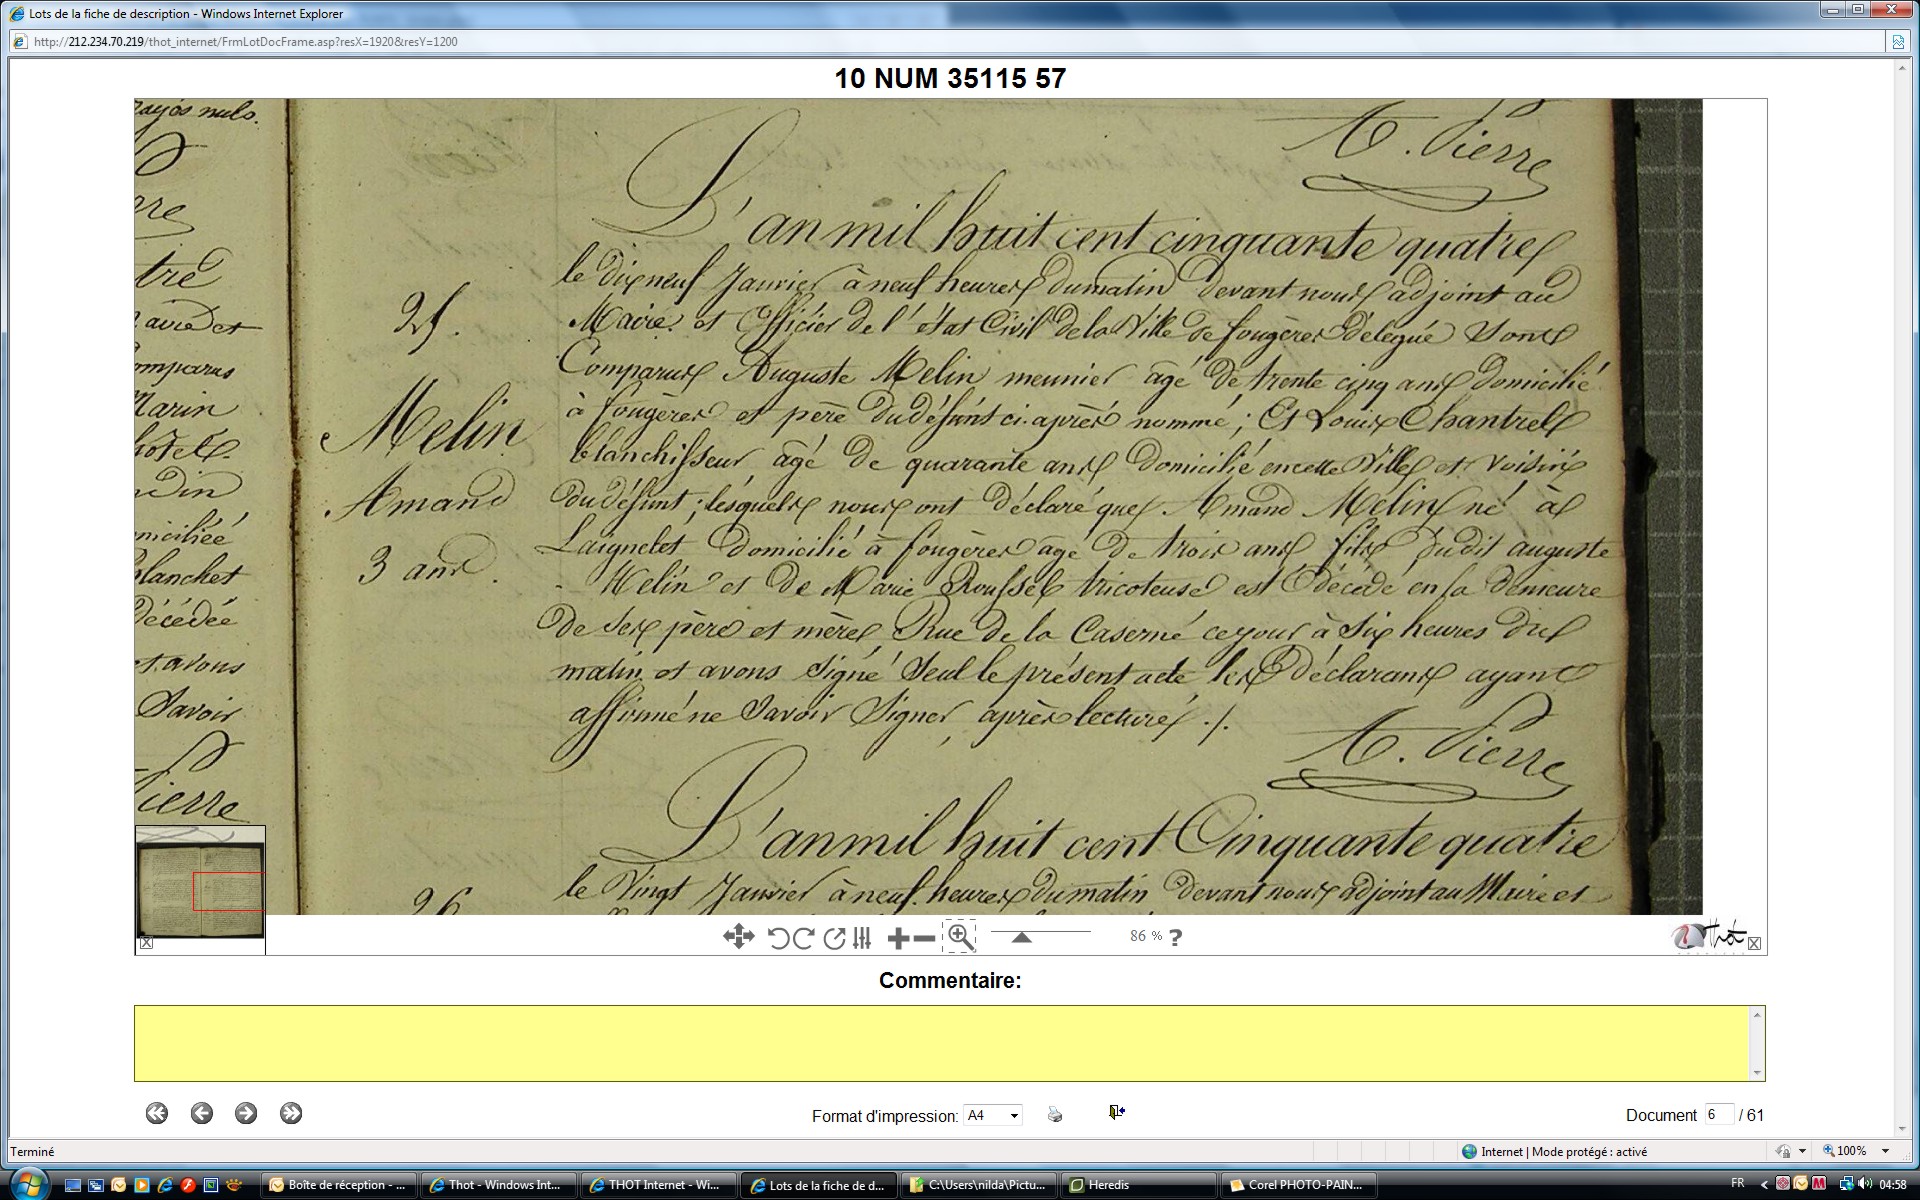 Lots de la fiche de description - Windows Internet Explorer
http://212.234.70.219/thot_internet/FrmLotDocFrame.asp?resX=1920&resY=1200
10 NUM 35115 57
rayés nuls.
tre
avié et
omparus
Marin
hotel
ndin
miciliée
Blanchet
Décédée
et avons
Savoir
Pierre
A. Pierre
25.
Melin
Amand
3 ans.
L'an mil huit cent cinquante quatre
le dix neuf Janvier à neuf heures du matin devant nous adjoint au
Maire et Officier de l'état Civil de la Ville de fougères délégué Sont
Comparus Auguste Melin meunier âgé de trente cinq ans domicilié
à fougères et père du défunt ci-après nommé; Et Louis Chantrel
blanchisseur âgé de quarante ans Domicilié en cette Ville et Voisin
du défunt; lesquels nous ont déclaré que Amand Melin né à
Laignelet domicilié à fougères âgé de trois ans fils dudit auguste
Melin et de Marie Roussel tricoteuse est décédé en la demeure
de ses père et mère, Rue de la Caserne ce jour à Six heures du
matin, et avons Signé Seul le présent acte les Déclarans ayant
affirmé ne Savoir Signer, après lecture ./.
A. Pierre
L'an mil huit cent Cinquante quatre
26
le Vingt Janvier à neuf heures du matin Devant nous adjoint au Maire et
86 % ?
Thot
Commentaire:
Format d'impression: A4
Document 6 / 61
Terminé
Internet | Mode protégé : activé
100%
Boîte de réception - ...
Thot - Windows Int...
THOT Internet - Wi...
Lots de la fiche de d...
C:\Users\nilda\Pictu...
Heredis
Corel PHOTO-PAIN...
FR
04:58